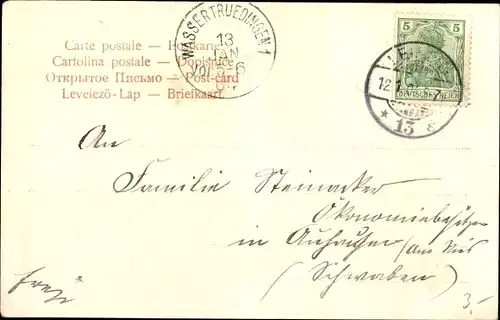 Carte postale — Postkarte
Cartolina postale — Dopisnice
Открытое Письмо — Post-card
Levelező-Lap — Briefkaart
WASSERTRUEDINGEN 1
13
JAN
5
5
DEUTSCHES REICH
12.
* 13
An
Familie Steinacker
Ökonomiebesitzer
in Auhausen (Am Ries
(Schwaben)
3.-